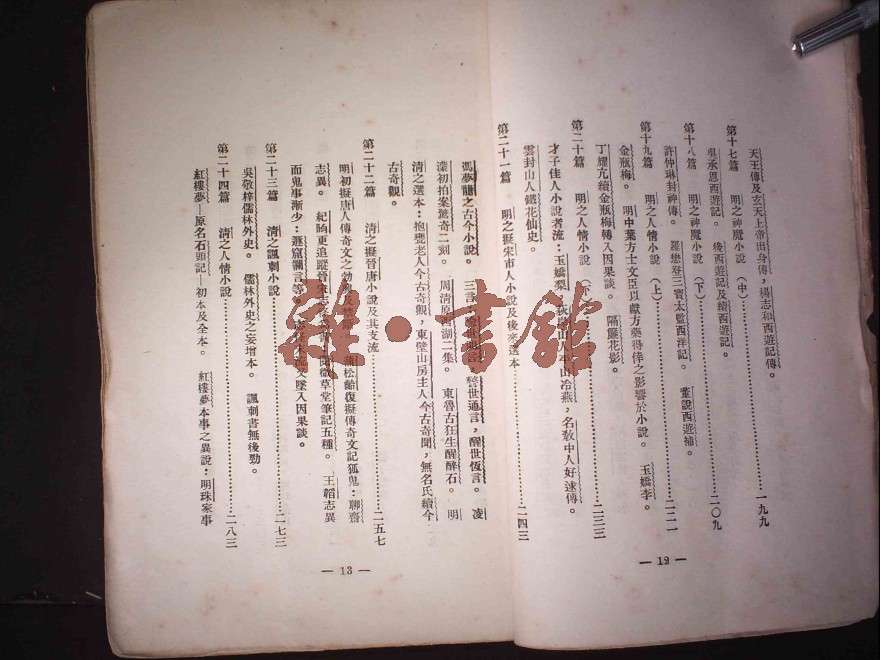 天王傳及玄天上帝出身傳，楊志和西遊記傳。
第十七篇　明之神魔小說（中）……一九九
吳承恩西遊記。　後西遊記及續西遊記。
第十八篇　明之神魔小說（下）……二〇九
許仲琳封神傳。　羅懋登三寶太監西洋記。　董說西遊補。
第十九篇　明之人情小說（上）……二二一
金瓶梅。　明中葉方士文臣以獻方藥得倖之影響於小說。　玉嬌李。
丁耀亢續金瓶梅轉入因果談。　隔簾花影。
第二十篇　明之人情小說（下）……二三三
才子佳人小說者流：玉嬌梨，荻岸山人平山冷燕，名敎中人好逑傳。
雲封山人鐵花仙史。
第二十一篇　明之擬宋市人小說及後來選本……二四三
馮夢龍之古今小說。　三言：喻世明言，警世通言，醒世恆言。　凌
濛初拍案驚奇二刻。　周清原西湖二集。　東魯古狂生醒醉石。　明
清之選本：抱甕老人今古奇觀，東壁山房主人今古奇聞，無名氏續今
古奇觀。
第二十二篇　清之擬晉唐小說及其支流……二五七
明初擬唐人傳奇文之勃興及禁　蒲松齡復擬傳奇文記狐鬼：聊齋
志異。　紀昀更追蹤晉宋志　閱微草堂筆記五種。　王韜志異
而鬼事漸少：遯窟讕言等。　志　又墜入因果談。
第二十三篇　清之諷刺小說……二七三
吳敬梓儒林外史。　儒林外史之妄增本。　諷刺書無後勁。
第二十四篇　清之人情小說……二八三
紅樓夢—原名石頭記—初本及全本。　紅樓夢本事之異說：明珠家事
— 12 —
— 13 —
雜·書館